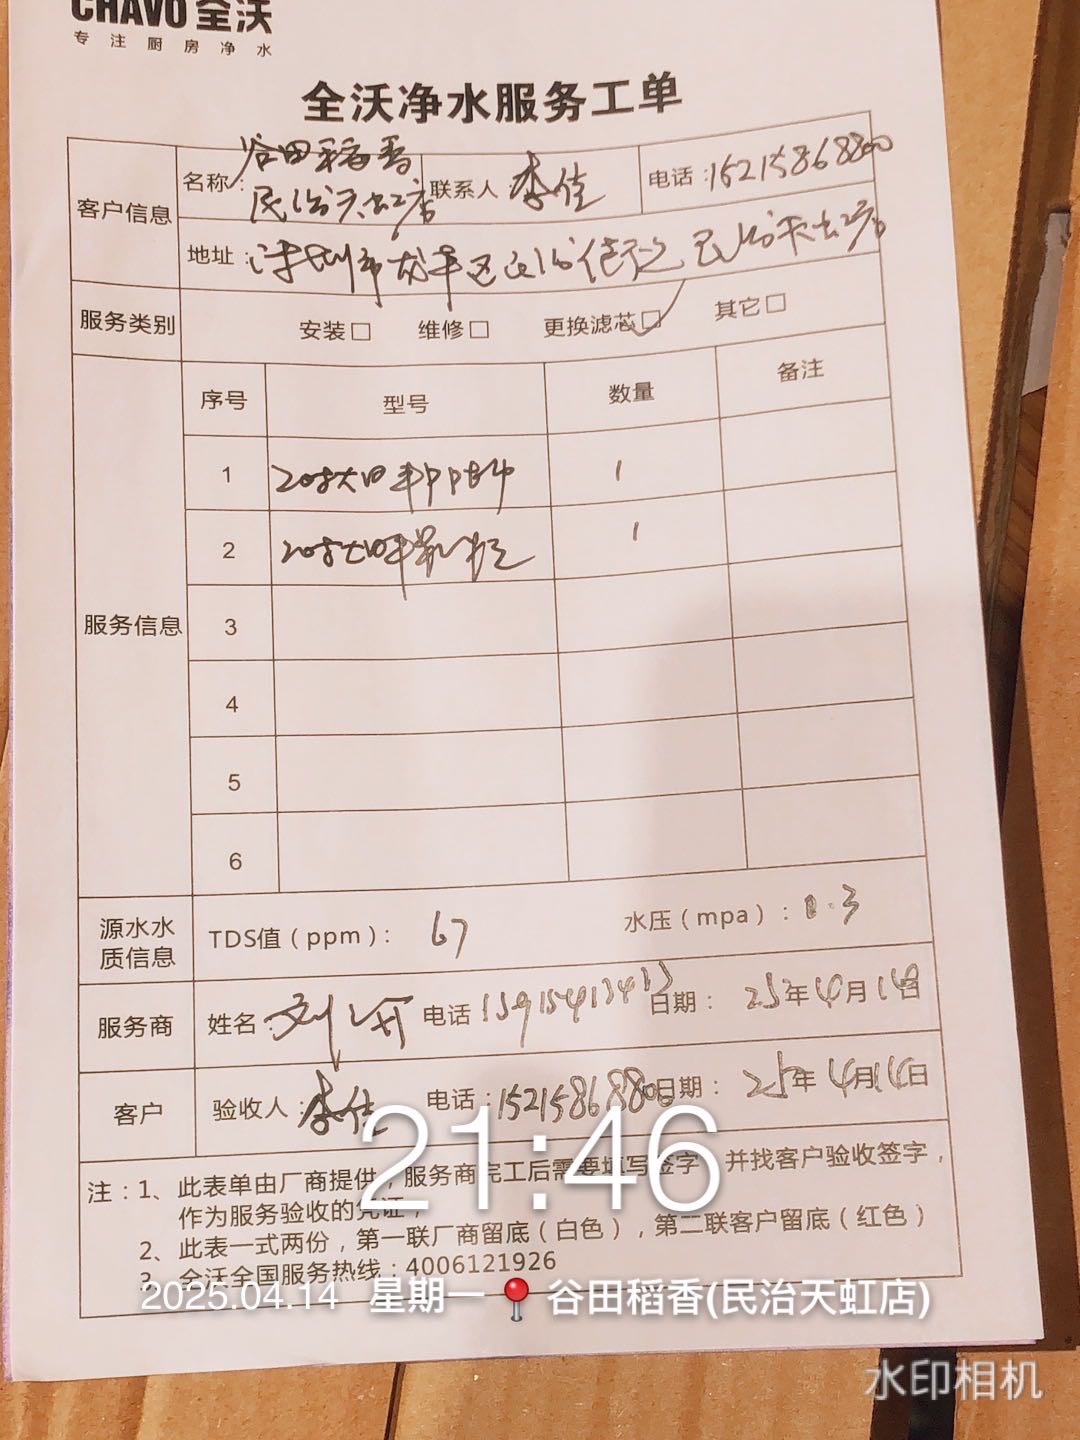 CHAVO全沃
专注厨房净水
全沃净水服务工单
客户信息
名称：谷田稻香
民治天虹店
联系人 李佳
电话：15215868800
地址：深圳市龙华区民治街道民治天虹店
服务类别
安装□ 维修□ 更换滤芯☑ 其它□
服务信息
序号 型号 数量 备注
1 1
2 1
3
4
5
6
源水水质信息
TDS值（ppm）： 67 水压（mpa）：0.3
服务商 姓名：刘 电话 日期： 25年4月14日
客户 验收人：李佳 电话：15215868800 日期： 25年4月14日
注：1、此表单由厂商提供，服务商完工后需要填写签字，并找客户验收签字，
作为服务验收的凭证；
2、此表一式两份，第一联厂商留底（白色），第二联客户留底（红色）
3、全沃全国服务热线：4006121926
21:46
2025.04.14 星期一 谷田稻香(民治天虹店)
水印相机